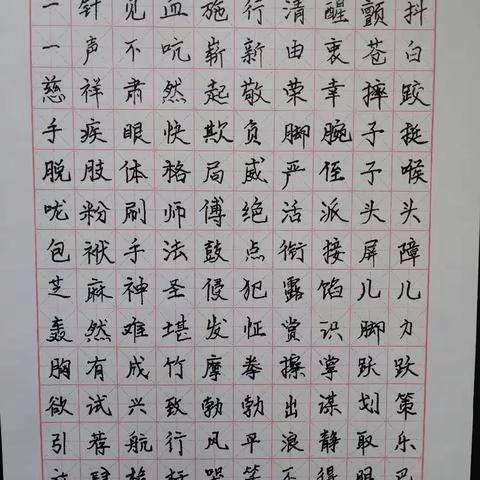 一针见血施行清醒颤抖
一声不吭崭新由衷苍白
慈祥肃然起敬荣幸摔跤
手疾眼快欺负脚腕子挺
脱肢体格局威严侄子喉
咙粉刷师傅绝活派头头
包袱手法鼓点衔接屏障
芝麻神圣侵犯露馅儿儿
轰然难堪发怔赏识脚力
胸有成竹摩拳擦掌跃跃
欲试兴致勃勃出谋划策
引荐航行风平浪静取乐